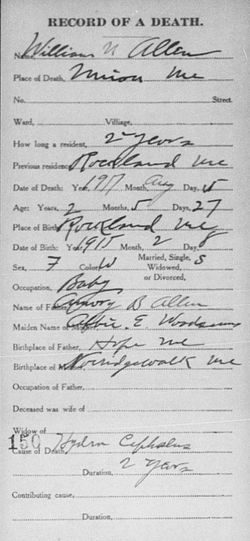 RECORD OF A DEATH.
Name, William N Allen
Place of Death, Union Me
No. Street.
Ward, Village,
How long a resident, 2 Years
Previous residence, Rockland Me
Date of Death: Year, 1917 Month, Aug Day, 5
Age: Years, 2 Months, 5 Days, 27
Place of Birth, Rockland Me
Date of Birth: Year, 1915 Month, 2 Day, 8
Sex, F Color, W Married, Single, S
Widowed,
or Divorced,
Occupation, Baby
Name of Father, B Allen
Maiden Name of Mother, Abbie E
Birthplace of Father, Hope Me
Birthplace of Mother, Norridgewalk Me
Occupation of Father,
Deceased was wife of
Widow of
150
Cause of Death, Hydra Cephalus
Duration, 2 Years
Contributing cause,
Duration,